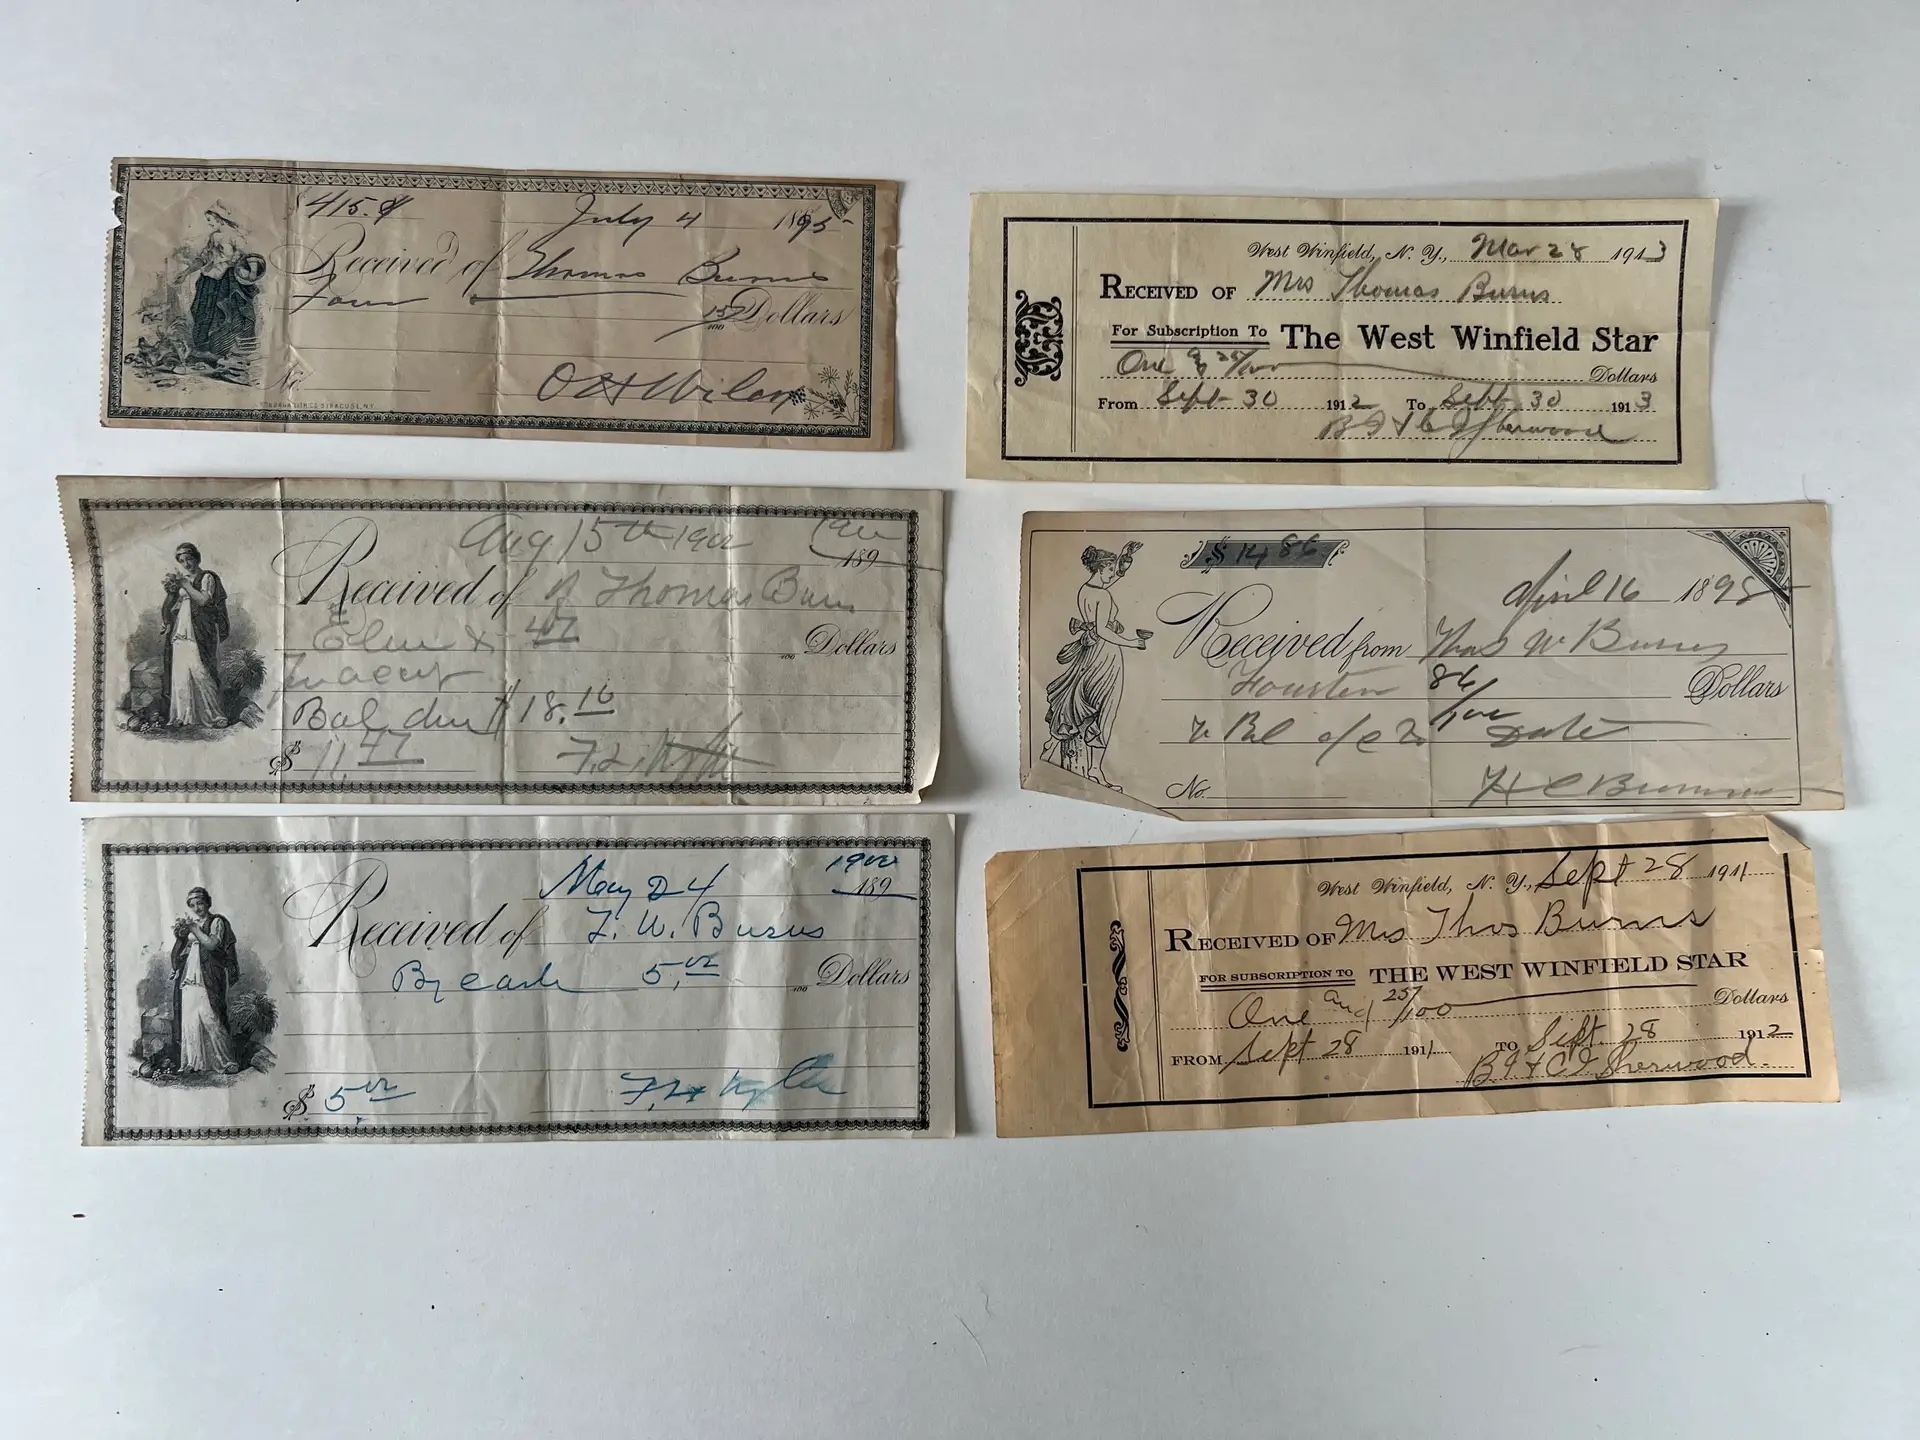 $415.
July 4 1895
Received of Thomas Burns
Four 15/100 Dollars
No.
O H Wilcox
SYRACUSE, N.Y.
Aug 15th 1900 189
Received of Thomas Burns
Eleven & 47 100 Dollars
Bal due $18.10
$ 11.47
May 24 1900 189
Received of T. W. Burns
By cash 5.00 100 Dollars
$ 5.00
West Winfield, N. Y., Mar 28 1913
RECEIVED OF Mrs Thomas Burns
For Subscription To The West Winfield Star
One & 25/100 Dollars
From Sept 30 1912 To Sept 30 1913
B I & C I Sherwood
$ 14 86
April 16 1898
Received from Thos W Burns
Fourteen 86/100 Dollars
Bal to date
No.
West Winfield, N. Y., Sept 28 1911
RECEIVED OF Mrs Thos Burns
FOR SUBSCRIPTION TO THE WEST WINFIELD STAR
One and 25/100 Dollars
FROM Sept 28 1911 TO Sept. 28 1912
B I & C I Sherwood